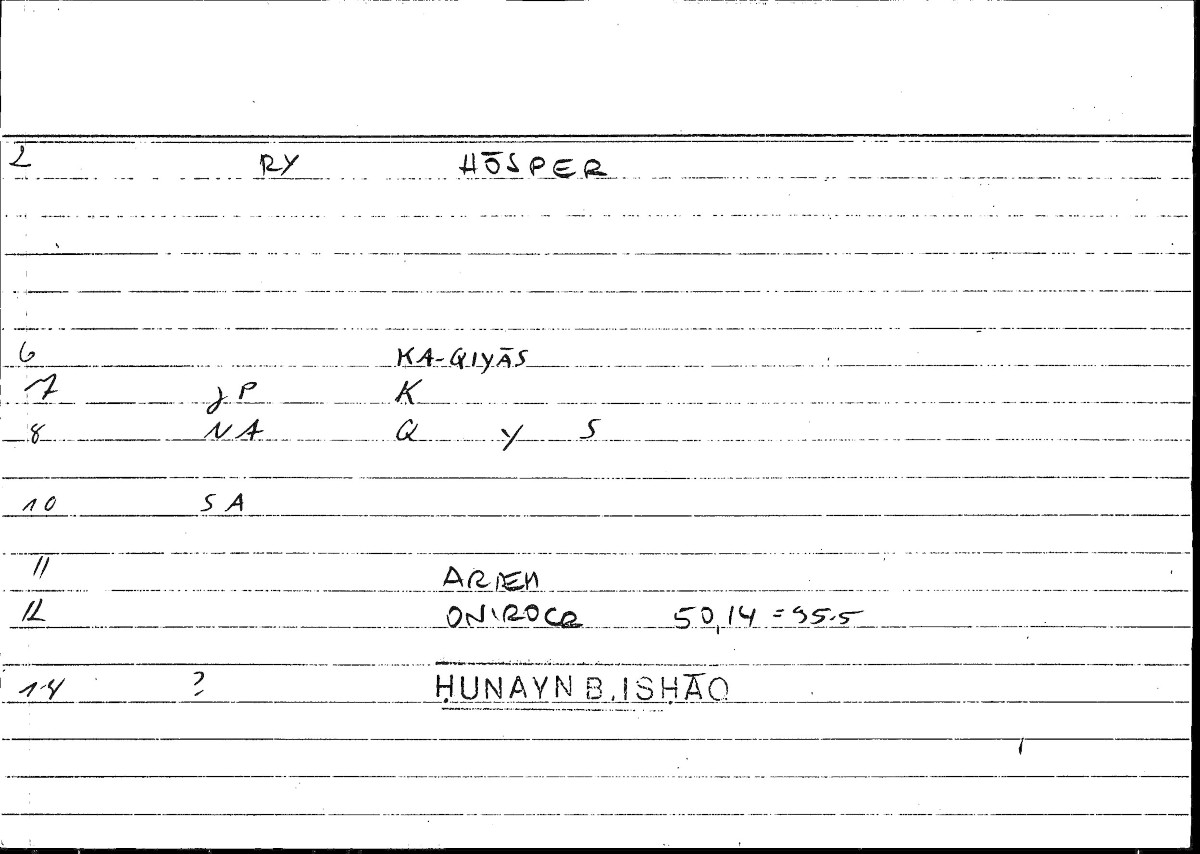 2 RY HŌSPER
6 KA-QIYĀS
7 JP K
8 NA Q Y S
10 SA
11 ARTEM
12 ONIROCR 50,14 = 95.5
14 ? ḤUNAYN B. ISḤĀQ